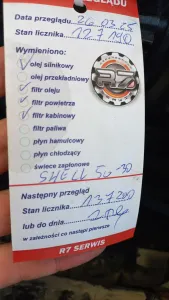 GLĄDU
Data przeglądu 26.03.25
Stan licznika 127190
Wymieniono:
olej silnikowy
olej przekładniowy
filtr oleju
filtr powietrza
filtr kabinowy
filtr paliwa
płyn hamulcowy
płyn chłodzący
świece zapłonowe
SHELL 5w30
Następny przegląd
Stan licznika 137200
lub do dnia
w zależności co nastąpi pierwsze
R7 SERWIS
R7